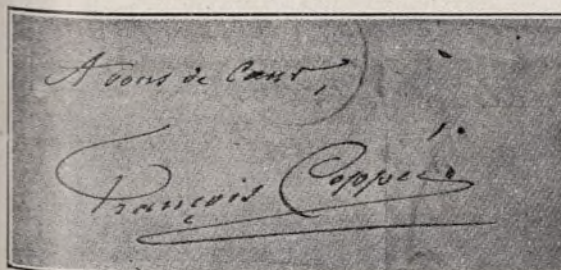 A vous de Cœur,
François Coppée